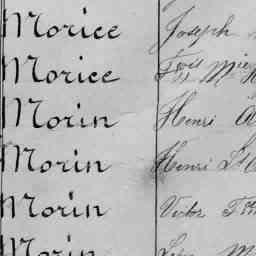 Morice Joseph
Morice Fois Mie
Morin Henri
Morin Henri Ls
Morin Victor
Morin